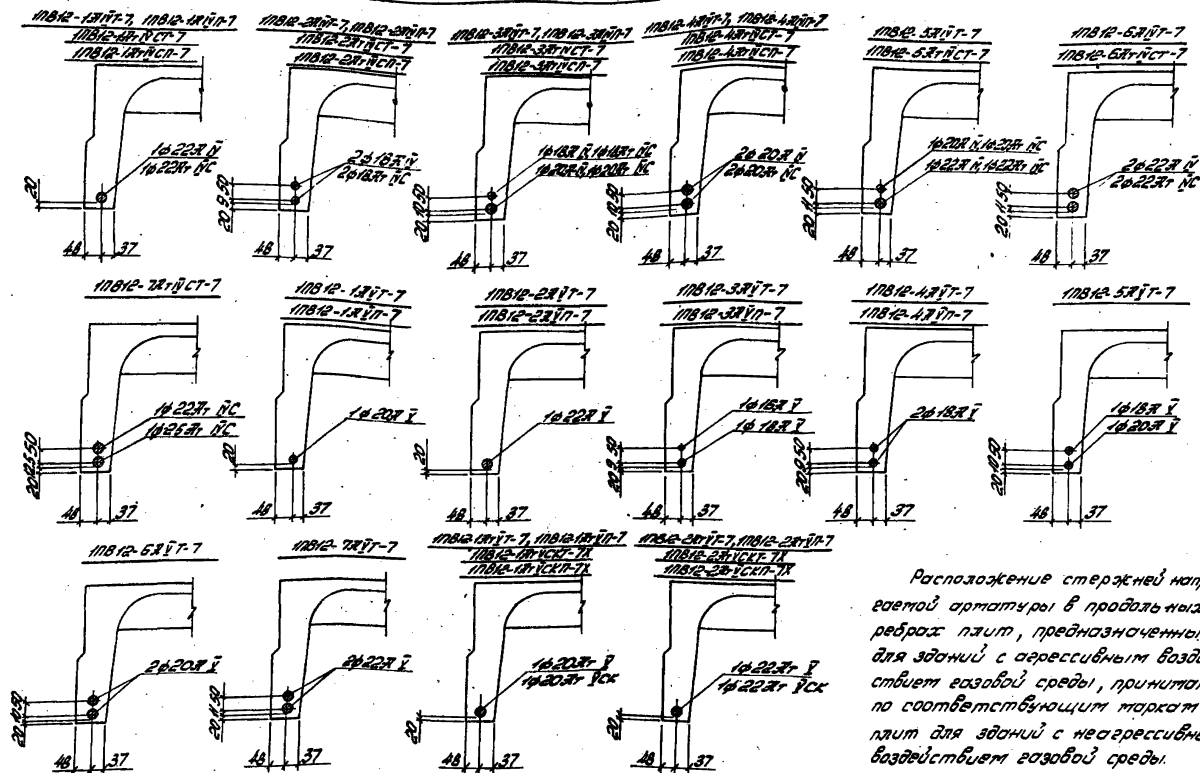 1ПВ12-1АIVТ-7, 1ПВ12-1АIVП-7
1ПВ12-1АтIVСТ-7
1ПВ12-1АтIVСП-7
1ф22АIV
1ф22АтIVС
20
48 37
1ПВ12-2АIVТ-7, 1ПВ12-2АIVП-7
1ПВ12-2АтIVСТ-7
1ПВ12-2АтIVСП-7
2ф18АIV
2ф18АтIVС
20 9 50
48 37
1ПВ12-3АIVТ-7, 1ПВ12-3АIVП-7
1ПВ12-3АтIVСТ-7
1ПВ12-3АтIVСП-7
1ф18АIV, 1ф18АтIVС
1ф20АIV, 1ф20АтIVС
20 10 50
48 37
1ПВ12-4АIVТ-7, 1ПВ12-4АIVП-7
1ПВ12-4АтIVСТ-7
1ПВ12-4АтIVСП-7
2ф20АIV
2ф20АтIVС
20 10 50
48 37
1ПВ12-5АIVТ-7
1ПВ12-5АтIVСТ-7
1ф20АIV, 1ф20АтIVС
1ф22АIV, 1ф22АтIVС
20 11 50
48 37
1ПВ12-6АIVТ-7
1ПВ12-6АтIVСТ-7
2ф22АIV
2ф22АтIVС
20 11 50
48 37
1ПВ12-7АтIVСТ-7
1ф22АтIVС
1ф25АтIVС
20 12,5 50
48 37
1ПВ12-1АVТ-7
1ПВ12-1АVП-7
1ф20АV
20
48 37
1ПВ12-2АVТ-7
1ПВ12-2АVП-7
1ф22АV
20
48 37
1ПВ12-3АVТ-7
1ПВ12-3АVП-7
1ф18АV
20 9 50
48 37
1ПВ12-4АVТ-7
1ПВ12-4АVП-7
2ф18АV
20 9 50
48 37
1ПВ12-5АVТ-7
1ф18АV
1ф20АV
20 10 50
48 37
1ПВ12-6АVТ-7
2ф20АV
20 10 50
48 37
1ПВ12-7АVТ-7
2ф22АV
20 11 50
48 37
1ПВ12-1АтVТ-7, 1ПВ12-1АтVП-7
1ПВ12-1АтVСКТ-7Х
1ПВ12-1АтVСКП-7Х
1ф20АтV
1ф20АтVСК
20
48 37
1ПВ12-2АтVТ-7, 1ПВ12-2АтVП-7
1ПВ12-2АтVСКТ-7Х
1ПВ12-2АтVСКП-7Х
1ф22АтV
1ф22АтVСК
20
48 37
Расположение стержней напр
гаемой арматуры в продольных
ребрах плит, предназначенны
для зданий с агрессивным возде
ствием газовой среды, принима
по соответствующим маркам
плит для зданий с неагрессивн
воздействием газовой среды.